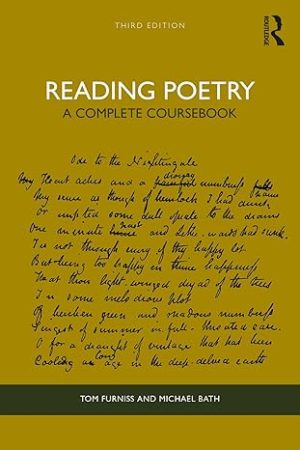 THIRD EDITION
ROUTLEDGE
READING POETRY
A COMPLETE COURSEBOOK
Ode to the Nightingale
drowsy
My Heart aches and a numbness
My sense as though of hemlock I had drunk
Or emptied some dull opiate to the drains
past
One minute and Lethe-wards had sunk.
Tis not through envy of thy happy lot
But being too happy in thine happiness
That thou light-winged dryad of the trees
In some melodious plot
Of beechen green and shadows numberless
Singest of summer in full-throated ease.
O for a draught of vintage that has been
Cooling an age in the deep-delved earth
TOM FURNISS AND MICHAEL BATH